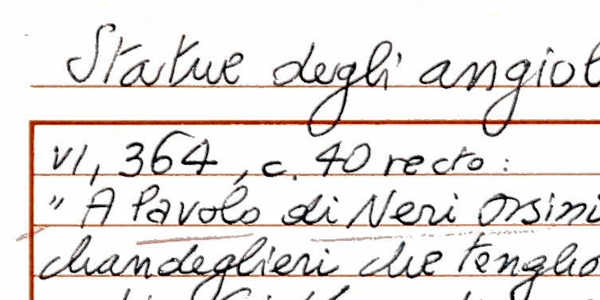 Statue degli angiol
VI, 364, c. 40 recto:
" A Pavolo di Neri Orsini
chandeglieri che tengho